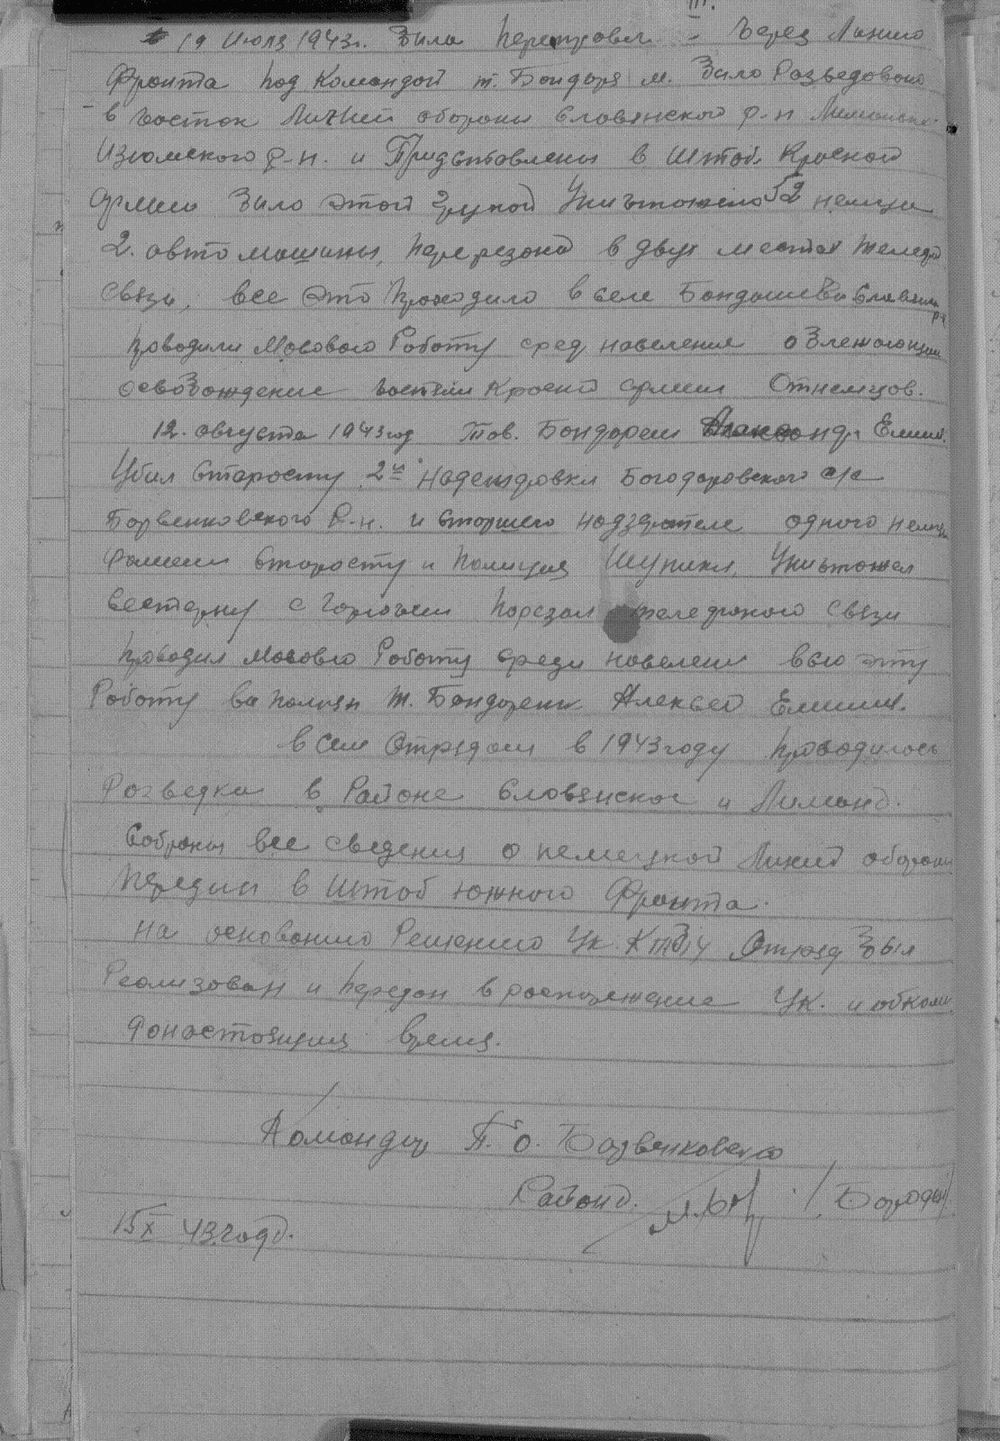 III.
19 Июля 1943г. Била переправл - Через Линию
Фронта под Командой т. Бондаря м. Било Разведовоно
в восток Линией обороны Славянского р-н Лиманск-
Изюмского р-н. и Предъставлены в Штаб Красной
Армии Било этой групой Унистожено 52 немца
2. автомашины, перерезоно в двух местах телефо
связи, все это проходило в селе Бандашевки Славян р-н
проводили Мосовою Роботу сред новеления о Злежающим
освобождение частями Красной армии От немцов.
12. августа 1943 год Тов. Бондарем Еким.
Убил Старосту 2й Надеждовки Богодаровского с/с
Борвенковского Р-н. и старшего надздрателе одного немца
Фамили Старосту и Полицая Шупики, Унистожел
вестерну с Горючем порезал телефоного связи
проводил Мосовою Роботу среди новелени всю эту
Роботу ва полнял т. Бондаренк Алексей Екимич.
всем Отрядом в 1943 году проводилось
Розведка в Районе Словянског и Лиманд.
Собраны все сведения о немецкой Линий обороны
передан в Штоб южного Фронта.
На основанию Решению Ук КП(б)У Отряд Был
Реализован и передан в распоряжение УК. и обкома
донастоящия время.
Командир П.О. Борвенковского
Района. /Бородин/
15 X 43 года.